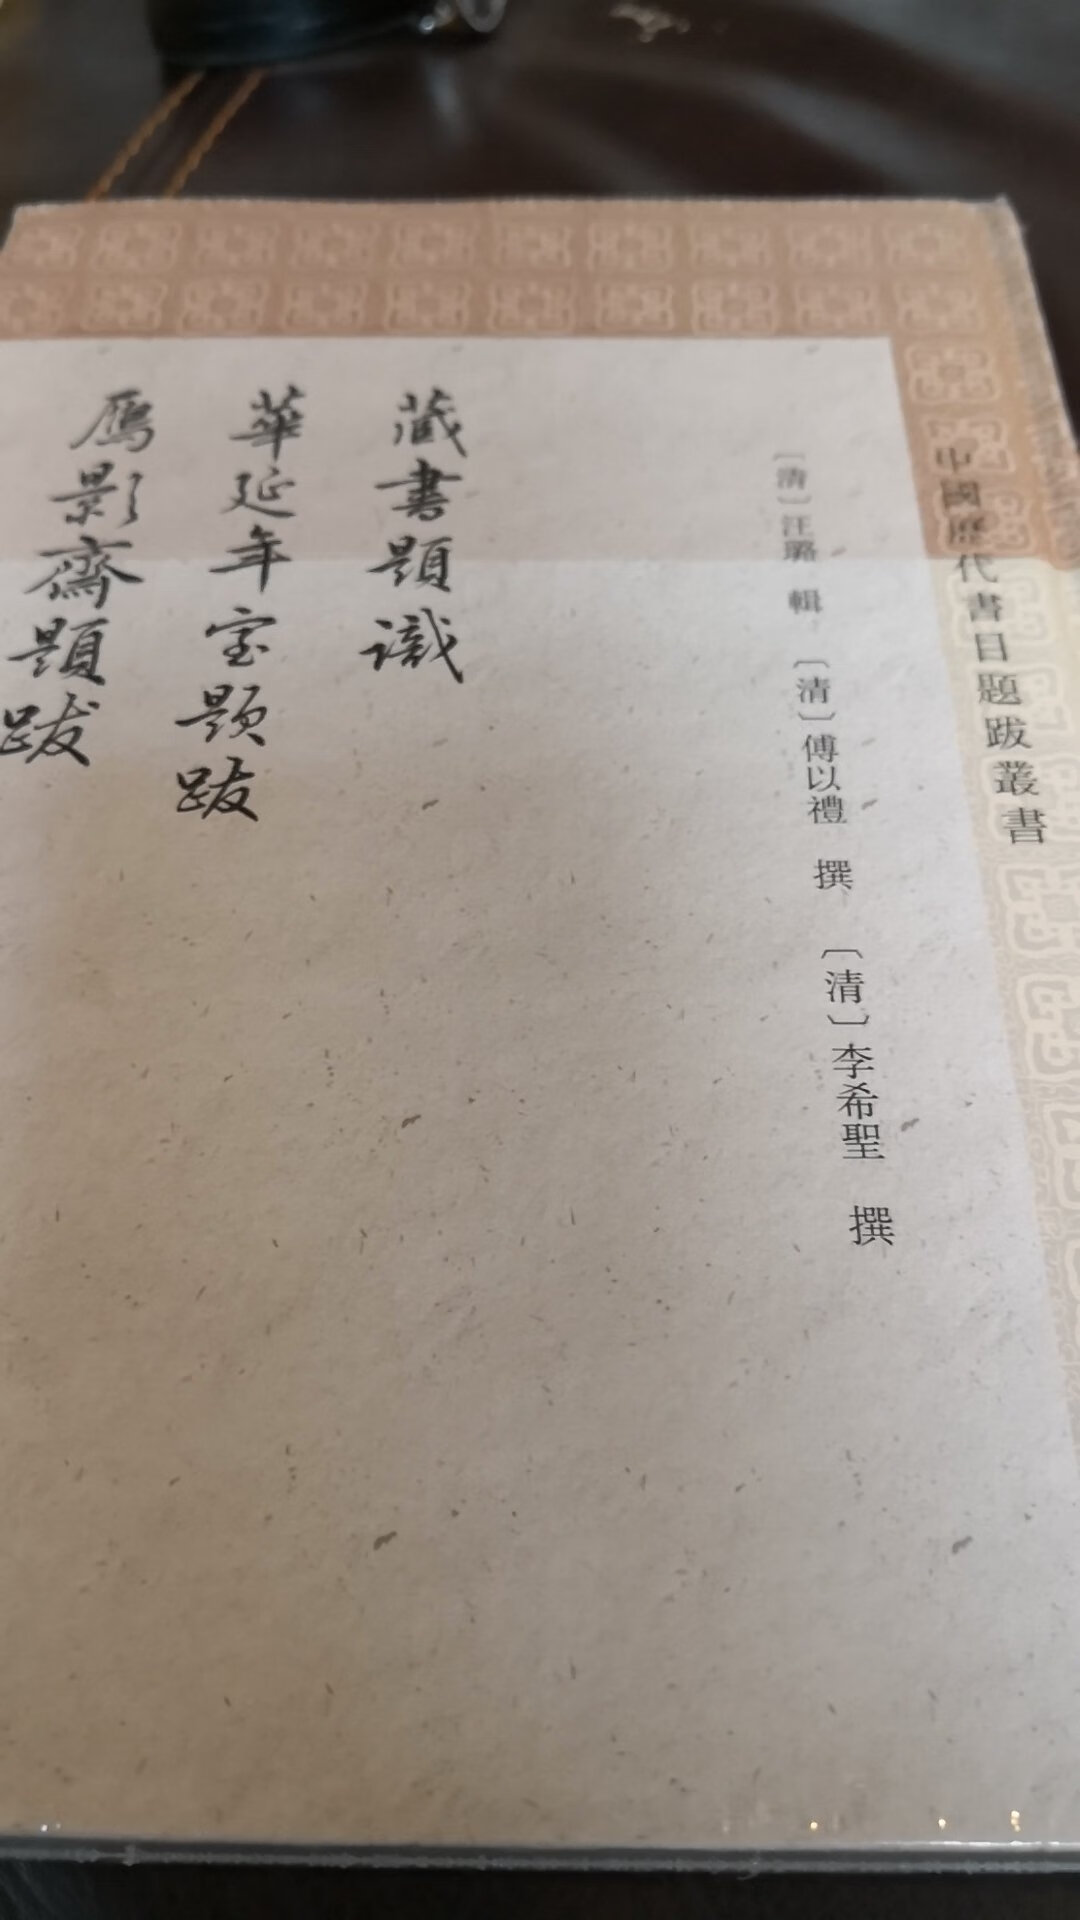 中國歷代書目題跋叢書
〔清〕汪璐 輯 〔清〕傅以禮 撰 〔清〕李希聖 撰
藏書題識
華延年室題跋
鴈影齋題跋